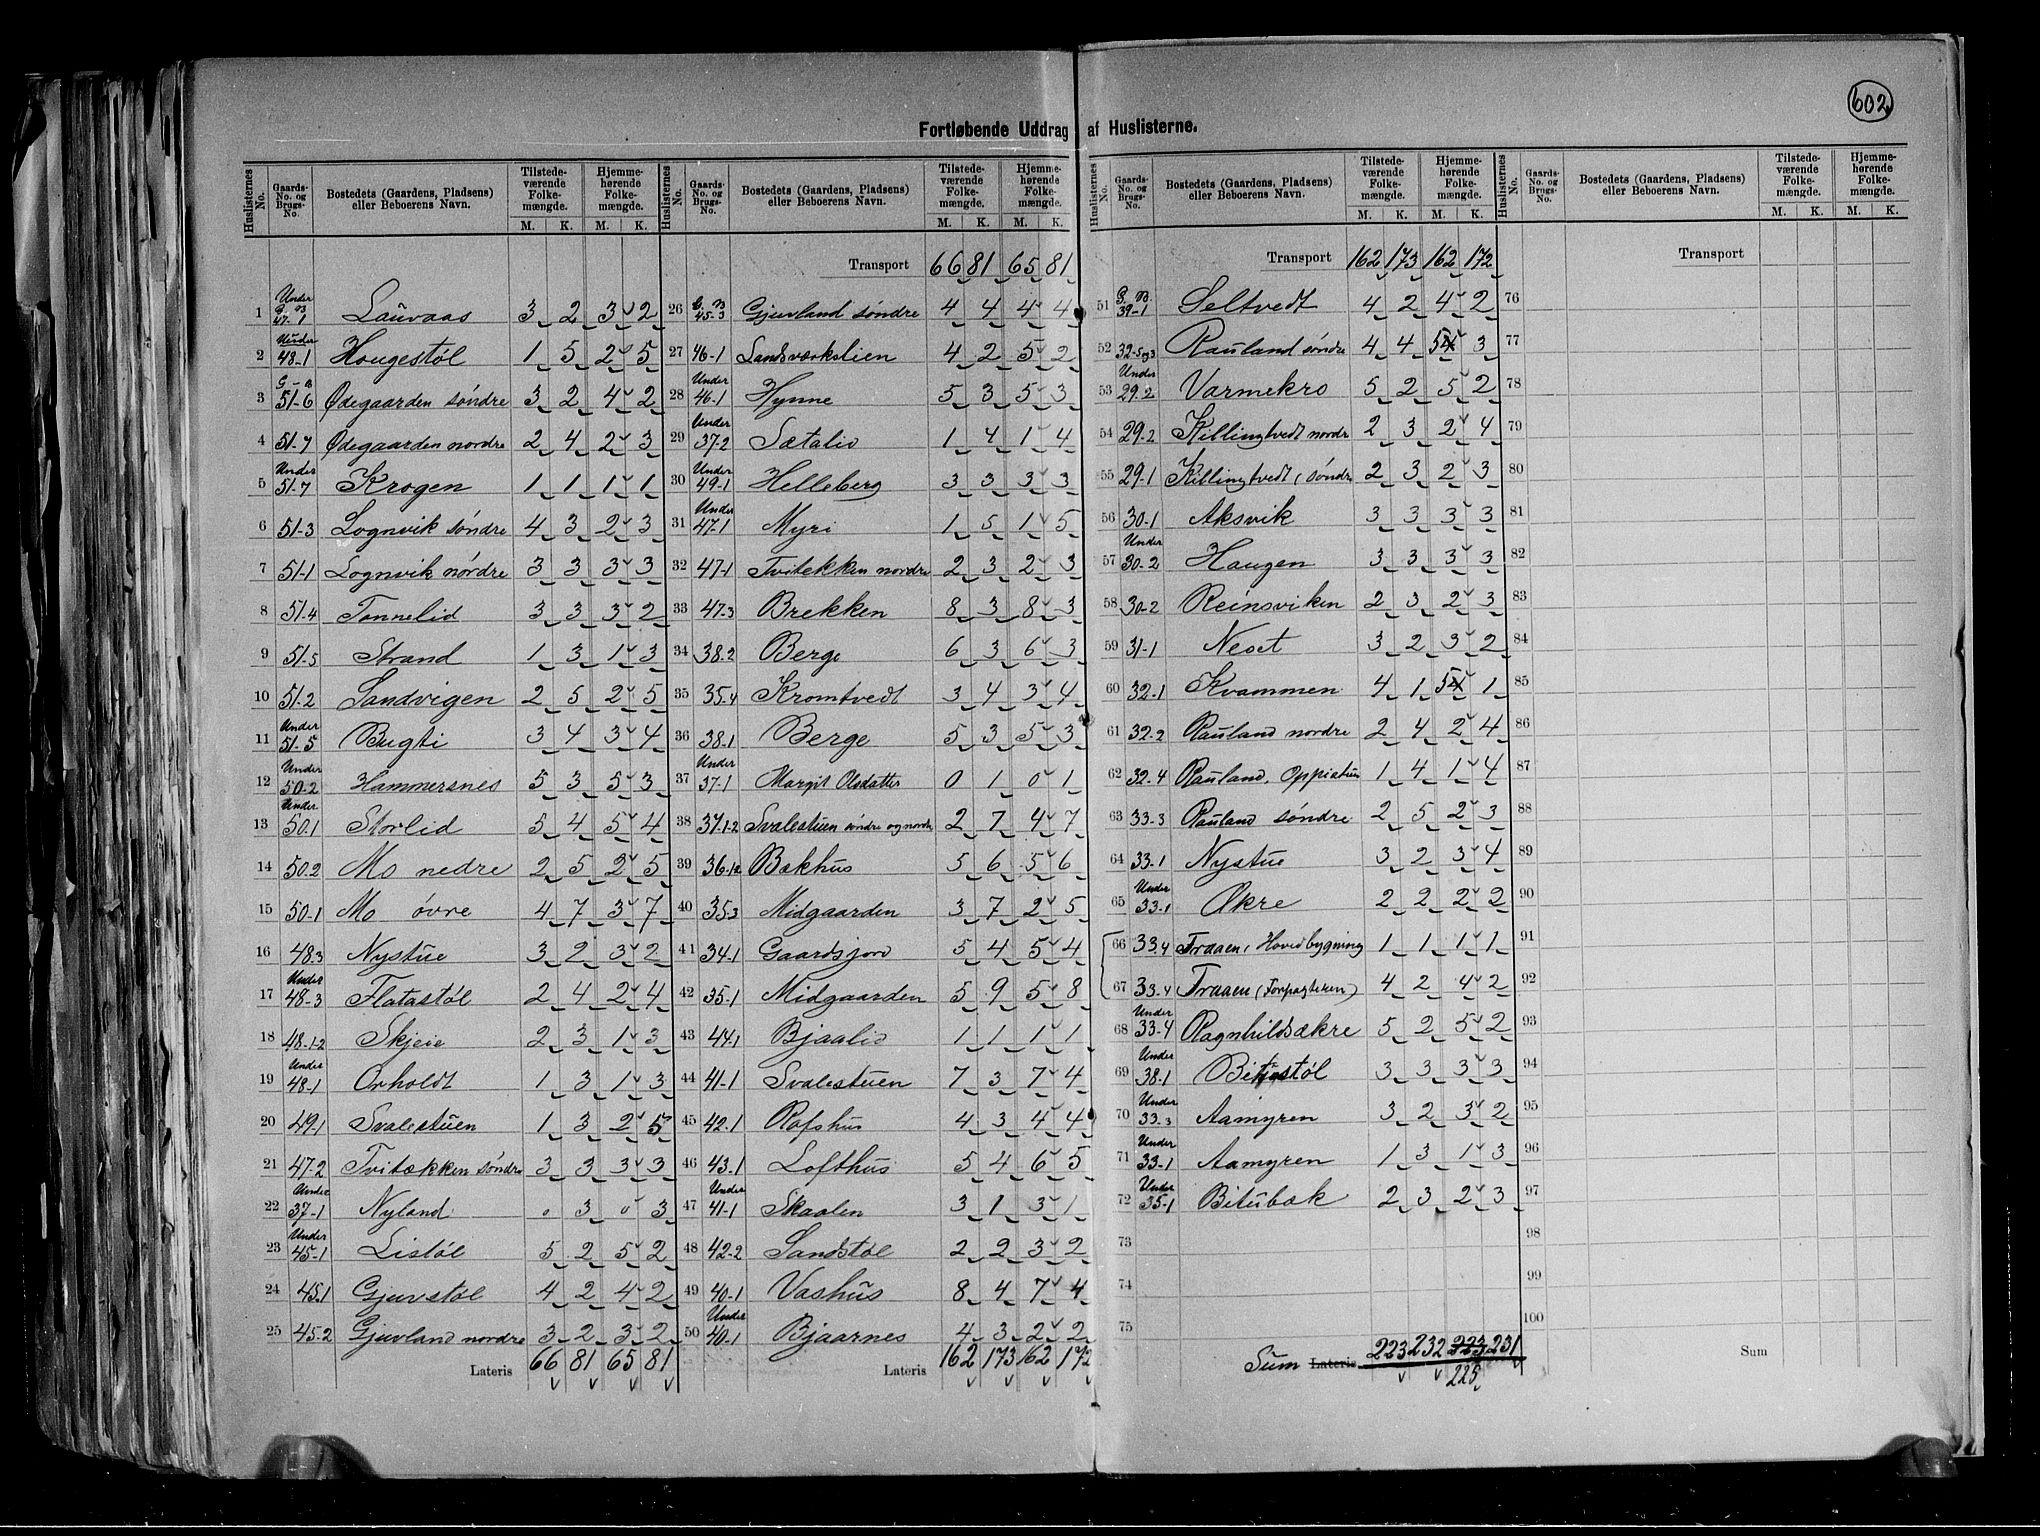 602
Fortløbende Uddrag af Huslisterne.
Huslisternes No. Gaards-No. og Brugs-No. Bostedets (Gaardens, Pladsens) eller Beboerens Navn. Tilstedeværende Folkemængde. M. K. Hjemmehørende Folkemængde. M. K.
1 Under G. B 47-1 Lauvaas 3 2 3 2
2 Under 48-1 Hougestøl 1 5 2 5
3 G-B 51-6 Ødegaarden søndre 3 2 4 2
4 51-7 Ødegaarden nordre 2 4 2 3
5 Under 51-7 Krogen 1 1 1 1
6 51-3 Lognvik søndre 4 3 2 3
7 51-1 Lognvik nordre 3 3 3 3
8 51-4 Tonnelid 3 3 3 2
9 51-5 Strand 1 3 1 3
10 51-2 Sandvigen 2 5 2 5
11 Under 51-5 Bugti 3 4 3 4
12 Under 50-2 Hammersnes 5 3 5 3
13 Under 50.1 Storlid 5 4 5 4
14 50.2 Mo nedre 2 5 2 5
15 50-1 Mo øvre 4 7 3 7
16 48.3 Nystue 3 2 3 2
17 Under 48-3 Flatastøl 2 4 2 4
18 48-1-2 Skjeie 2 3 1 3
19 Under 48-1 Orholdt 1 3 1 3
20 49-1 Svalestuen 1 3 2 5
21 47-2 Tvitækken søndre 3 3 3 3
22 Under 37-1 Nyland 0 3 0 3
23 Under 45-1 Listøl 5 2 5 2
24 45.1 Gjuvstøl 4 2 4 2
25 45-2 Gjuvland nordre 3 2 3 2
Lateris 66 81 65 81
Huslisternes No. Gaards-No. og Brugs-No. Bostedets (Gaardens, Pladsens) eller Beboerens Navn. Tilstedeværende Folkemængde. M. K. Hjemmehørende Folkemængde. M. K.
Transport 66 81 65 81
26 G. B 45-3 Gjuvland søndre 4 4 4 4
27 46-1 Landsværkslien 4 2 5 2
28 Under 46-1 Hynne 5 3 5 3
29 Under 37-2 Sætalid 1 4 1 4
30 Under 49-1 Helleberg 3 3 3 3
31 Under 47-1 Myri 1 5 1 5
32 47-1 Tvitekken nordre 2 3 2 3
33 47.3 Brekken 8 3 8 3
34 38.2 Berge 6 3 6 3
35 35.4 Kromtvedt 3 4 3 4
36 38.1 Berge 5 3 5 3
37 Under 37-1 Margit Olsdatter 0 1 0 1
38 37.1-2 Svalestuen søndre og nordre 2 7 4 7
39 36-12 Bækhus 5 6 5 6
40 35.3 Midgaarden 3 7 2 5
41 34-1 Gaardsjord 5 4 5 4
42 35-1 Midgaarden 5 9 5 8
43 44-1 Bjaalid 1 1 1 1
44 41-1 Svalestuen 7 3 7 4
45 42.1 Rofshus 4 3 4 4
46 43.1 Lofthus 5 4 6 5
47 Under 41-1 Skaalen 3 1 3 1
48 42-2 Sandstøl 2 2 3 2
49 40-1 Vashus 8 4 7 4
50 Under 40-1 Bjaarnes 4 3 2 2
Lateris 162 173 162 172
Huslisternes No. Gaards-No. og Brugs-No. Bostedets (Gaardens, Pladsens) eller Beboerens Navn. Tilstedeværende Folkemængde. M. K. Hjemmehørende Folkemængde. M. K.
Transport 162 173 162 172
51 G. B. 39-1 Seltvedt 4 2 4 2
52 32-5og3 Rauland søndre 4 4 5 3
53 Under 29.2 Varmekro 5 2 5 2
54 29-2 Killingtvedt nordre 2 3 2 4
55 29-1 Killingtvedt, søndre 2 3 2 3
56 30-1 Aksvik 3 3 3 3
57 Under 30-2 Haugen 3 3 3 3
58 30-2 Reinsviken 2 3 2 3
59 31-1 Neset 3 2 3 2
60 32-1 Kvammen 4 1 5 1
61 32-2 Rauland nordre 2 4 2 4
62 32.4 Rauland, Oppistuen 1 4 1 4
63 33-3 Rauland søndre 2 5 2 3
64 33-1 Nystue 3 2 3 4
65 Under 33-1 Økre 2 2 2 2
66 33.4 Traaen, Hovedbygning 1 1 1 1
67 33.4 Traaen (Forpagteren) 4 2 4 2
68 Under 33-4 Ragnhildsækre 5 2 5 2
69 Under 38-1 3 3 3 3
70 Under 33-3 Aamyren 3 2 3 2
71 Under 33-1 Aamyren 1 3 1 3
72 Under 35-1 Bitubæk 2 3 2 3
73
74
75
Sum Lateris 223 232 223 231
225
Huslisternes No. Gaards-No. og Brugs-No. Bostedets (Gaardens, Pladsens) eller Beboerens Navn. Tilstedeværende Folkemængde. M. K. Hjemmehørende Folkemængde. M. K.
Transport
76
77
78
79
80
81
82
83
84
85
86
87
88
89
90
91
92
93
94
95
96
97
98
99
100
Sum